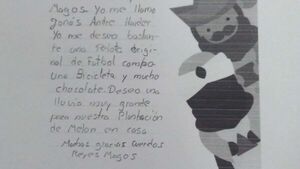 Magos. Yo me llamo
Jonás Andre Harder
Yo me deseo bastan-
te una Pelota origi-
nal de Futbol campo
una Bicicleta y mucho
chocolate. Deseo una
lluvia muy grande
para nuestra Plantación
de Melon en casa
Muchas gracias queridos
Reyes Magos